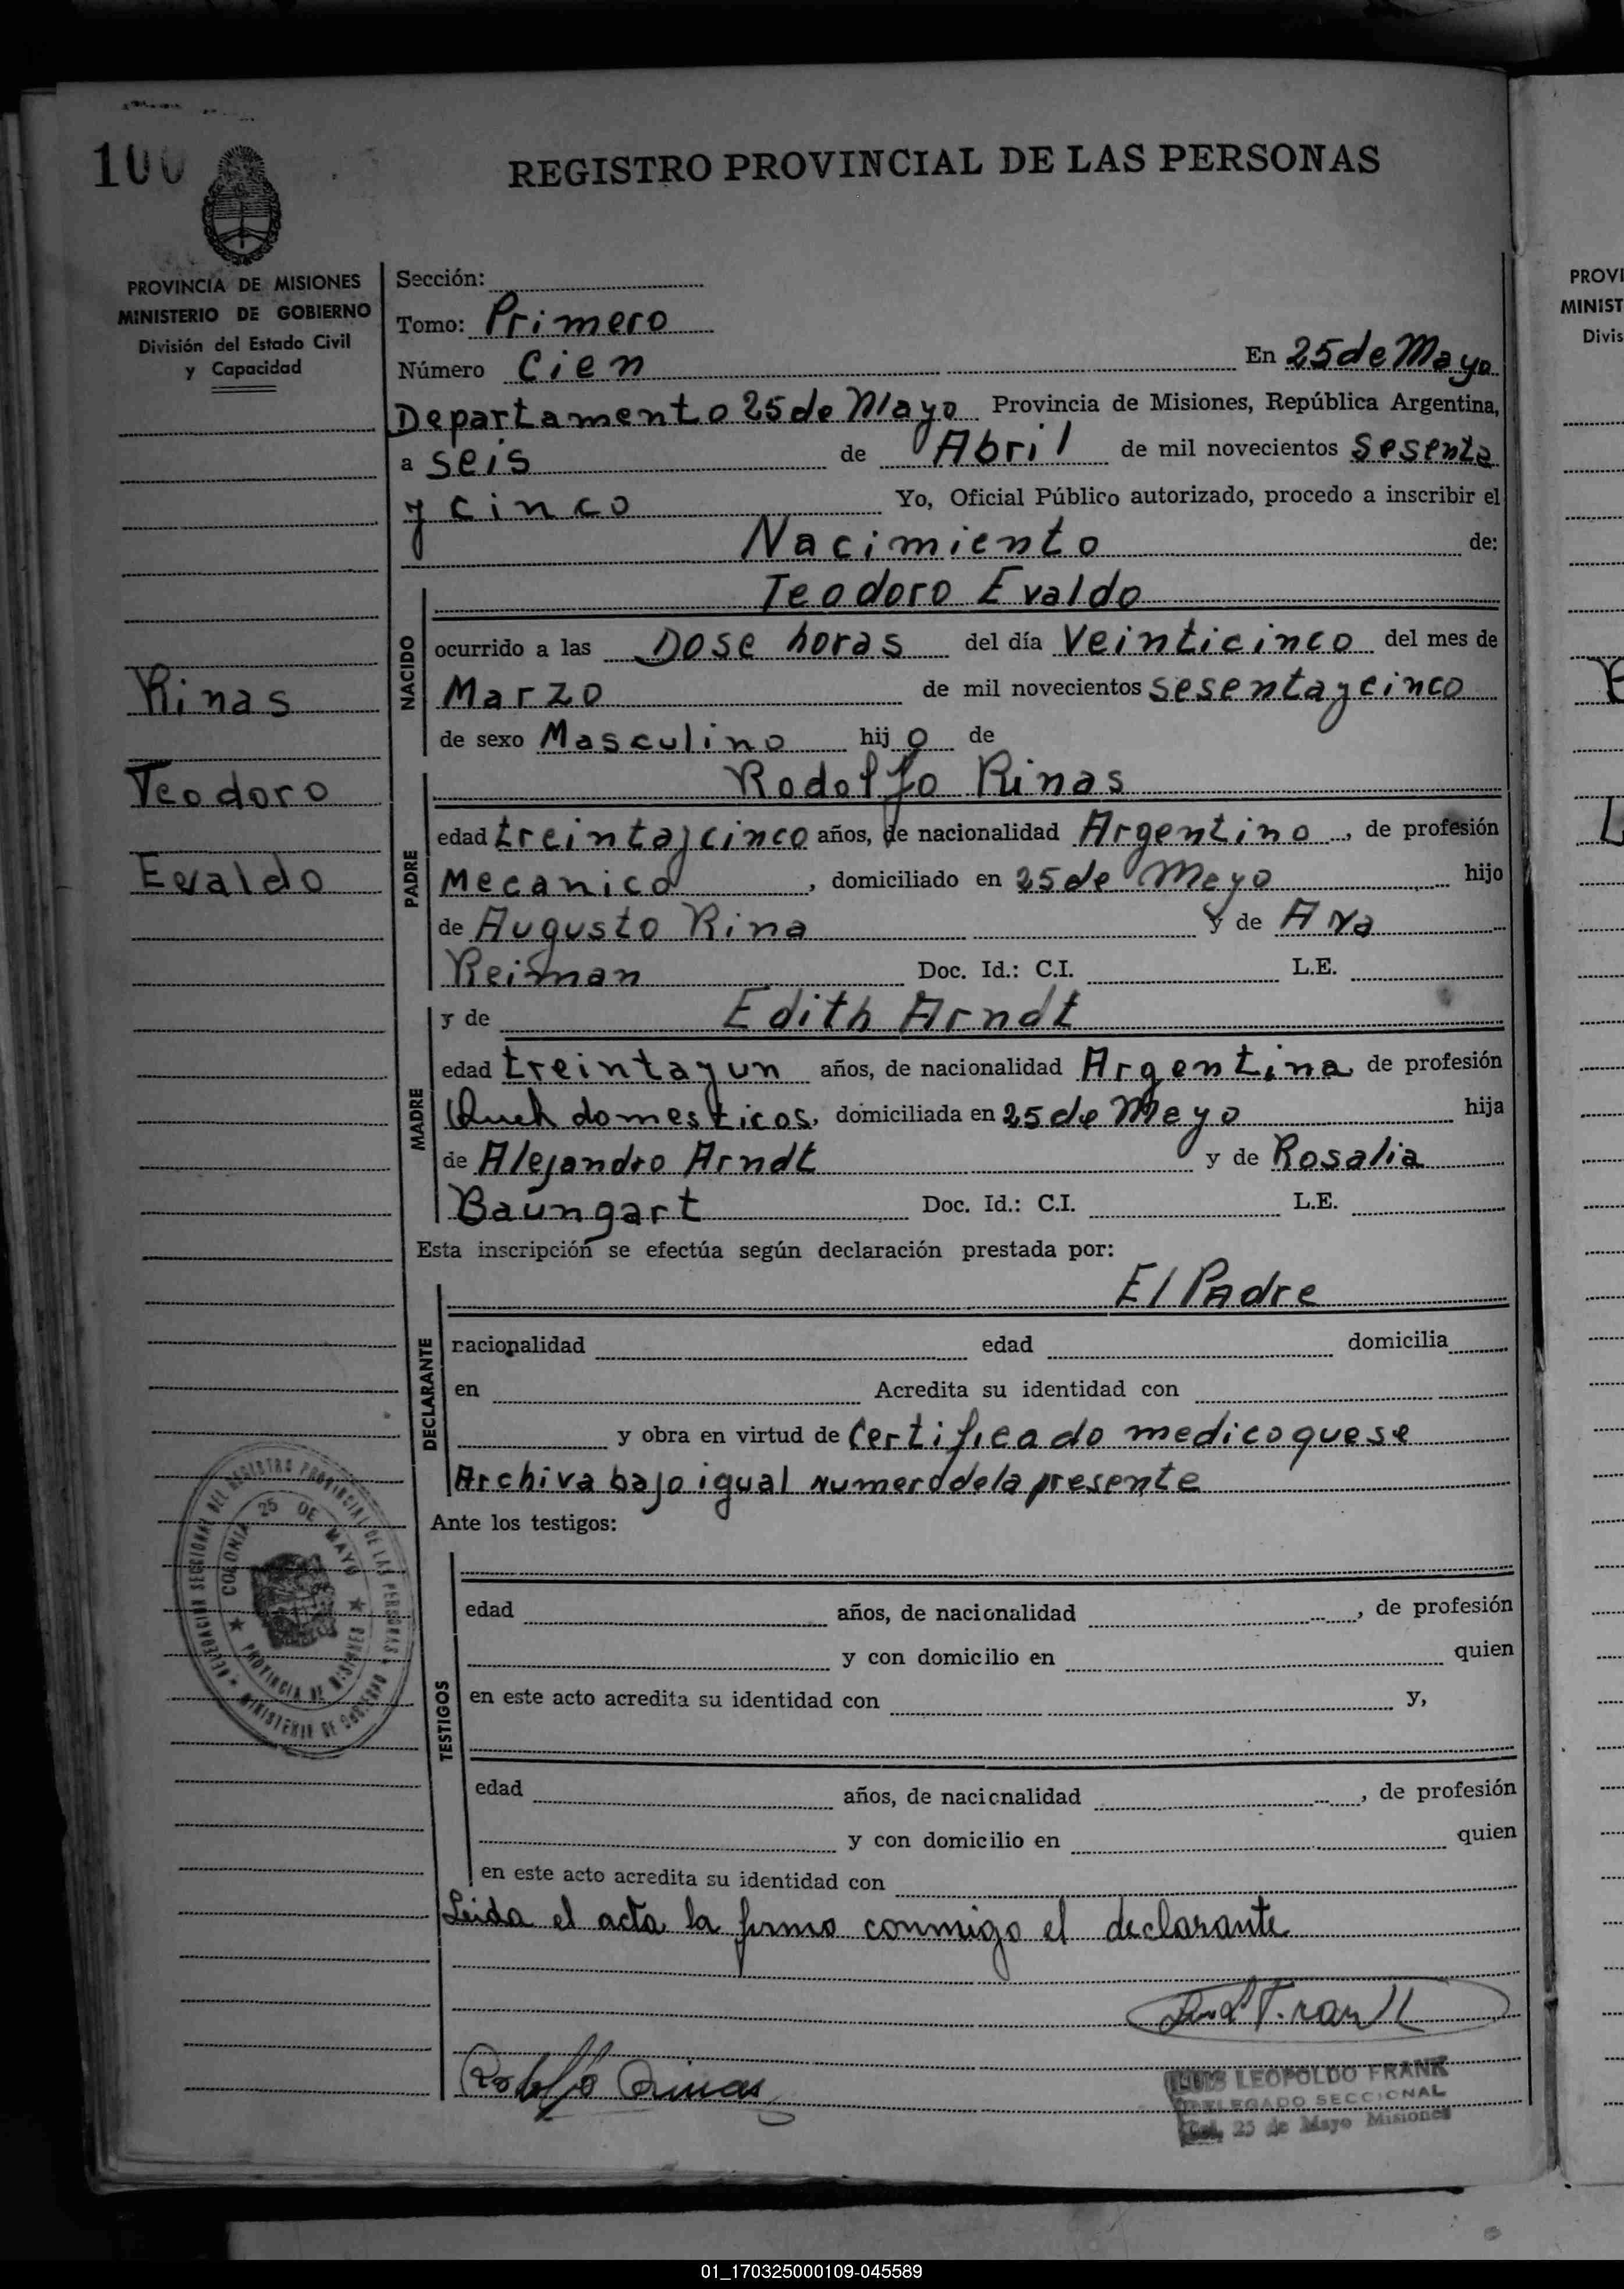 100
REGISTRO PROVINCIAL DE LAS PERSONAS
PROVINCIA DE MISIONES
MINISTERIO DE GOBIERNO
División del Estado Civil
y Capacidad
Rinas
Teodoro
Evaldo
Sección:
Tomo: Primero
Número Cien En 25 de Mayo
Departamento 25 de Mayo Provincia de Misiones, República Argentina,
a seis de Abril de mil novecientos Sesenta
y cinco Yo, Oficial Público autorizado, procedo a inscribir el
Nacimiento de:
NACIDO
Teodoro Evaldo
ocurrido a las Dose horas del día Veinticinco del mes de
Marzo de mil novecientos sesenta y cinco
de sexo Masculino hijo de
PADRE
Rodolfo Rinas
edad treinta y cinco años, de nacionalidad Argentino, de profesión
Mecanico, domiciliado en 25 de Meyo hijo
de Augusto Rina y de Ana
Reiman Doc. Id.: C.I. L.E.
MADRE
y de Edith Arndt
edad treinta y un años, de nacionalidad Argentina, de profesión
Queh domesticos, domiciliada en 25 de Meyo hija
de Alejandro Arndt y de Rosalia
Baungart Doc. Id.: C.I. L.E.
Esta inscripción se efectúa según declaración prestada por:
DECLARANTE
El Padre
nacionalidad edad domicilia
en Acredita su identidad con
y obra en virtud de Certificado medico que se
Archiva bajo igual numero de la presente
Ante los testigos:
TESTIGOS
edad años, de nacionalidad, de profesión
y con domicilio en quien
en este acto acredita su identidad con y,
edad años, de nacionalidad, de profesión
y con domicilio en quien
en este acto acredita su identidad con
Leida el acta la firmo conmigo el declarante
Rodolfo Rinas
LUIS LEOPOLDO FRANK
DELEGADO SECCIONAL
Col. 25 de Mayo Misiones
DELEGACION SECCIONAL DEL REGISTRO PROVINCIAL DE LAS PERSONAS
MINISTERIO DE GOBIERNO
COLONIA 25 DE MAYO
PROVINCIA DE MISIONES
PROVI
MINIST
Divis
01_170325000109-045589